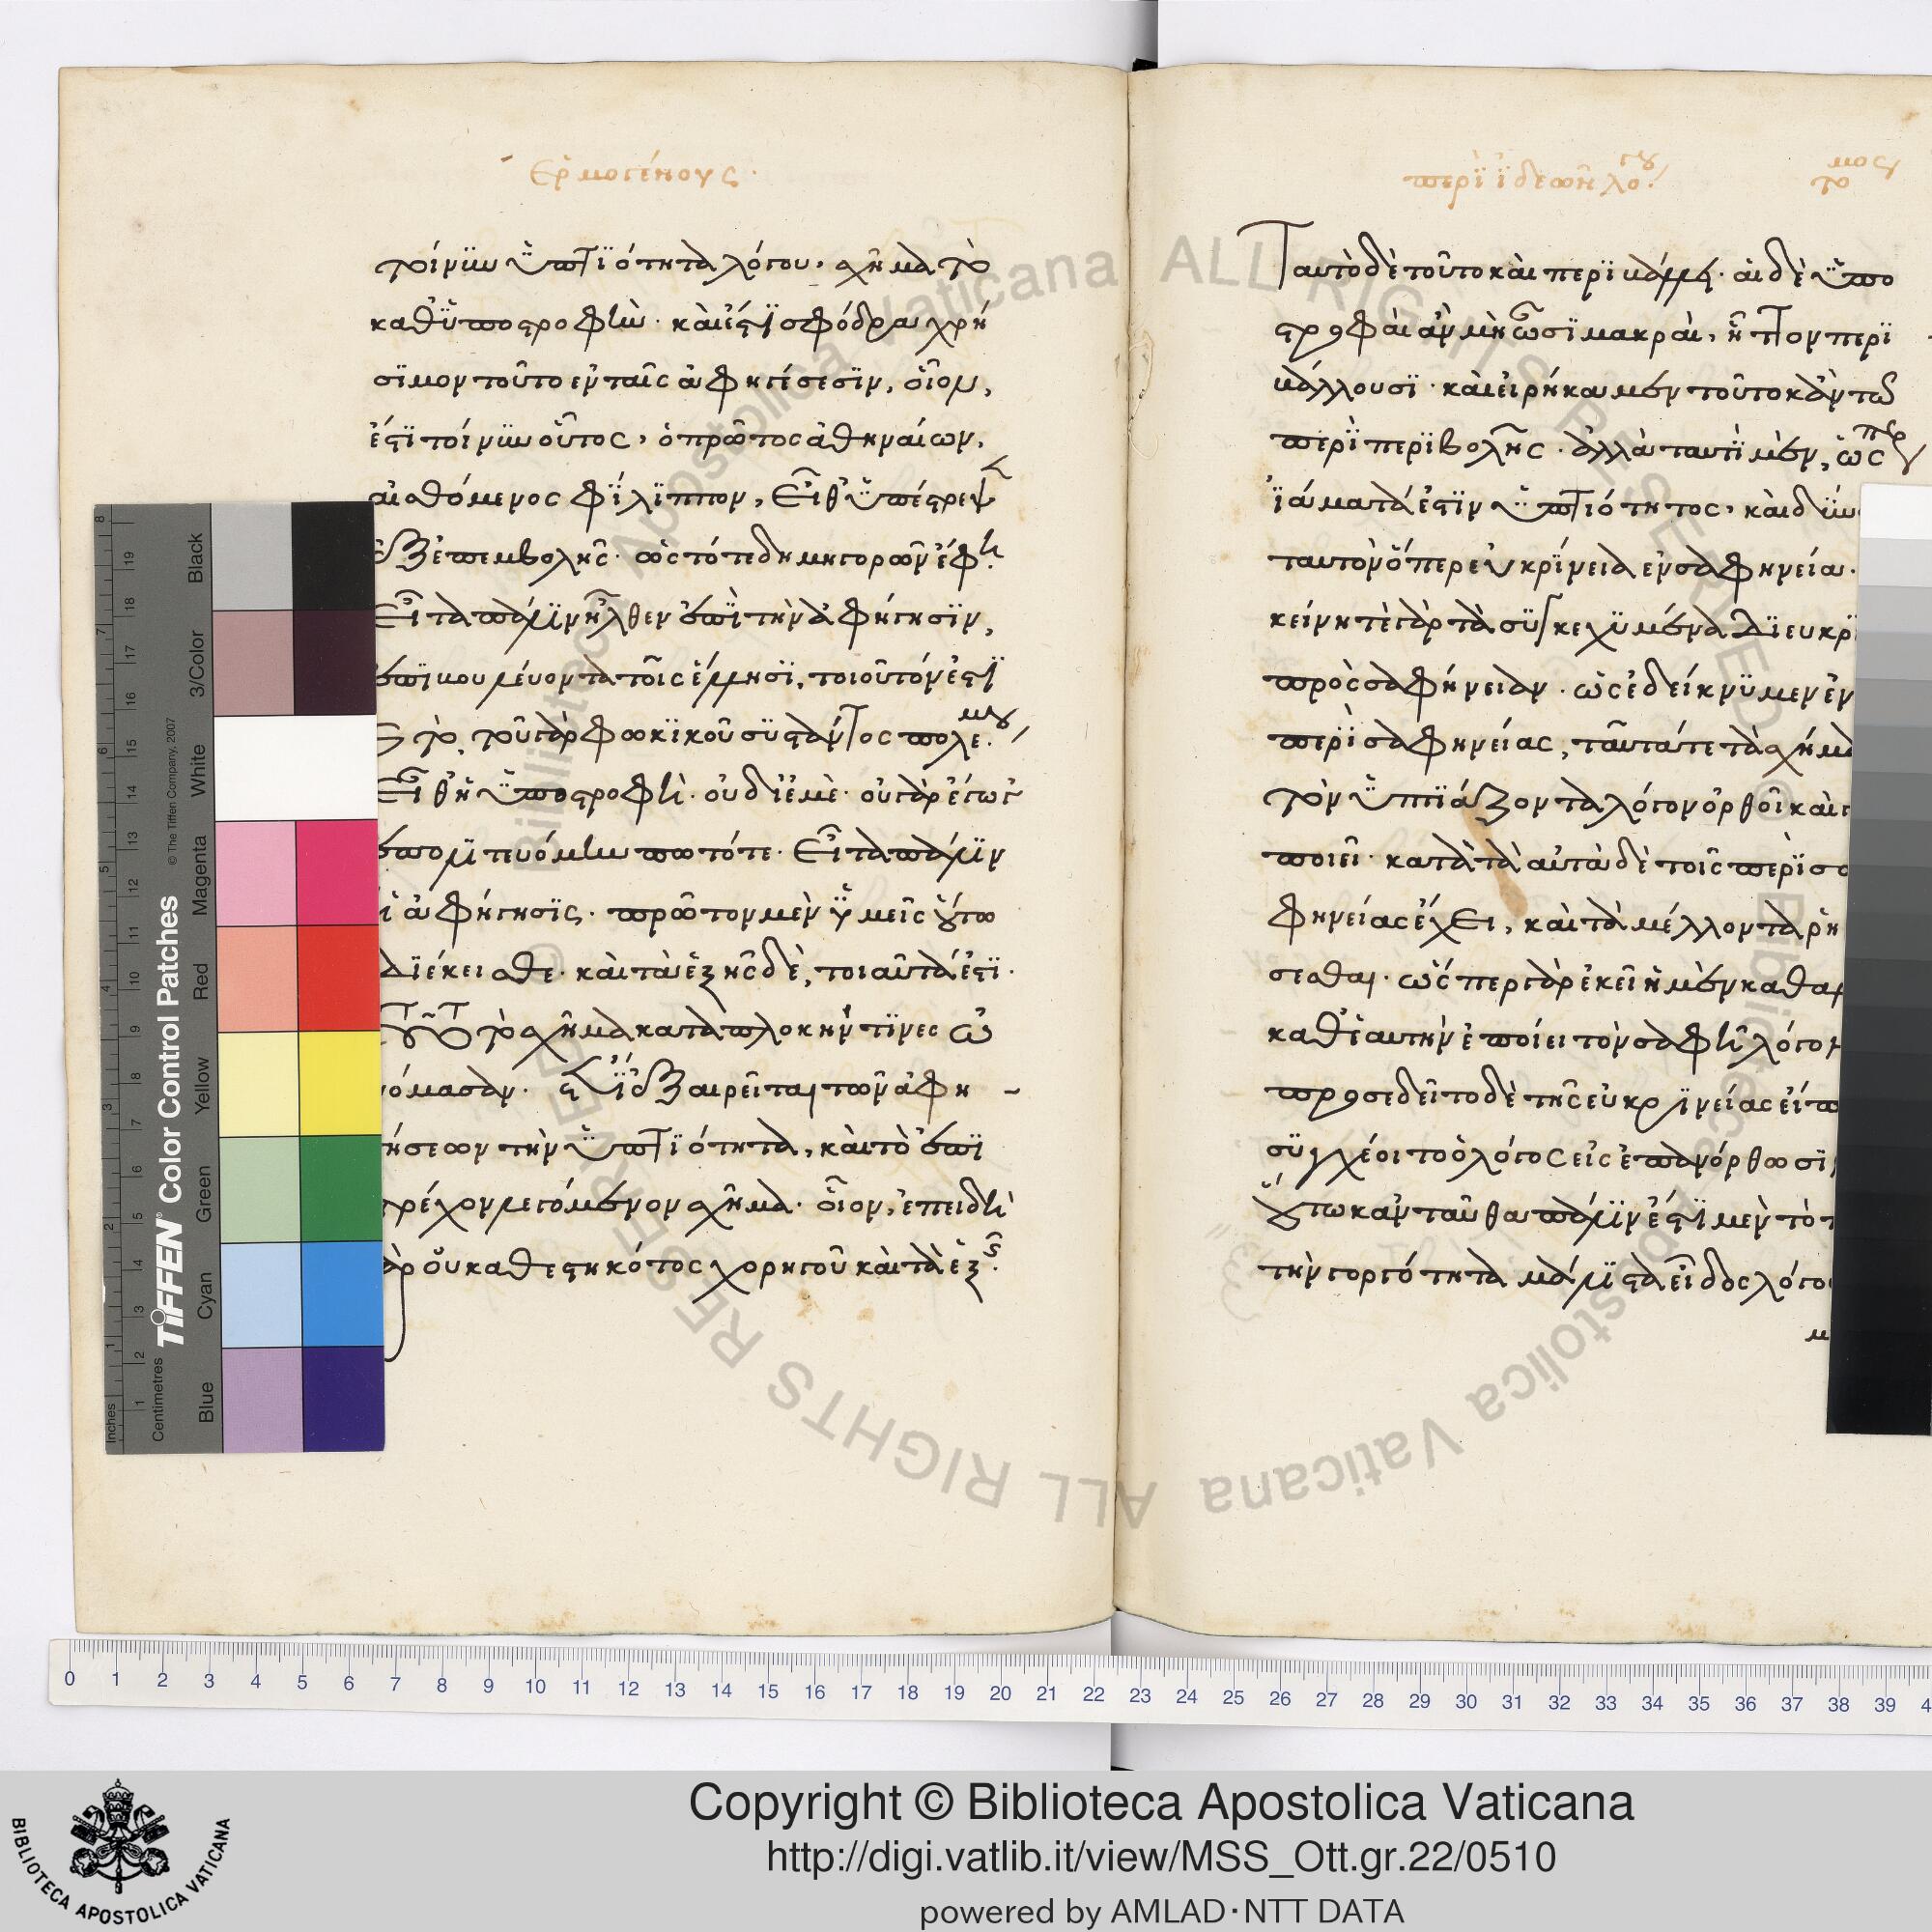 Ἑρμογένους.
τοίνυν ὑπτιότητα λόγου, σχῆμα τὸ
καθ' ὑποστροφὴν. καὶ ἔστι σφόδρα χρή
σιμον τοῦτο ἐν ταῖς ἀφηγήσεσιν, οἷον,
ἔστι τοίνυν οὗτος, ὁ πρῶτος ἀθηναίων,
αἰσθόμενος φίλιππον, εἶθ' ὑπέστρεψ
ἐξ ἐπεμβολῆς. ὡς τότε δημηγορῶν ἔφη.
Εἶτα πάλιν ἦλθεν ἐπὶ τὴν ἀφήγησιν,
τοιοῦτόν ἐστι
τὸ, τοῦ γὰρ φωκικοῦ συστάντος πολέμου
Εἶθ' ἡ ὑποστροφὴ. οὐ δι' ἐμὲ. οὐ γὰρ ἔγωγ
ἐπολιτευόμην πω τότε. Εἶτα πάλιν
ἡ ἀφήγησις. πρῶτον μὲν ὑμεῖς οὕτω
διέκεισθε. καὶ τὰ ἑξῆς δὲ, τοιαῦτά ἐστι.
τοῦτο τὸ σχῆμα κατὰ πλοκήν τινες ὠ
νόμασαν. ἔτι ἐξαιρεῖται τῶν ἀφη
γήσεων τὴν ὑπτιότητα, καὶ τὸ ἐπι
τρέχον λεγόμενον σχῆμα. οἷον, ἐπειδὴ
γὰρ οὐ καθεστηκότος χορηγοῦ καὶ τὰ ἑξῆς.
περὶ ἰδεῶν λόγου
τόμος
Ταυτὸ δὲ τοῦτο καὶ περὶ κάλλους. αἱ δὲ ὑπο
στροφαὶ ἂν μὴ ὦσι μακραὶ, ἧττον περι
βάλλουσι. καὶ εἰρήκαμεν τοῦτο κἀν τῶ
περὶ περιβολῆς. ἀλλὰ ταυτὶ μὲν, ὥσπερ
ἰάματά ἐστιν ὑπτιότητος, καὶ δύν
ταυτὸν ὅπερ εὐκρίνεια ἐν σαφηνεία.
κείνη τὲ γὰρ τὰ συγκεχυμένα διευκρι
πρὸς σαφήνειαν. ὡς ἐδείκνυμεν ἐν
περὶ σαφηνείας, ταῦτά τε τὰ σχήμα
τὸν ὑπτιάζοντα λόγον ὀρθοῖ καὶ
ποιεῖ. κατὰ τὰ αὐτὰ δὲ τοῖς περὶ σα
φηνείας ἔχει, καὶ τὰ μέλλοντα ῥη
σεσθαι. ὥσπερ γὰρ ἐκεῖ ἡ μὲν καθα
καθ' ἑαυτὴν ἐποίει τὸν σαφῆ λόγον
προσεδεῖτο δὲ τῆς εὐκρινείας εἴ π
συγχέοιτο ὁ λόγος εἰς ἐπανόρθωσιν
οὕτω κἀνταῦθα πάλιν ἔστι μὲν τὸ
τὴν γοργότητα μάλιστα εἶδος λόγο
Copyright © Biblioteca Apostolica Vaticana
http://digi.vatlib.it/view/MSS_Ott.gr.22/0510
powered by AMLAD·NTT DATA
BIBLIOTECA APOSTOLICA VATICANA
TIFFEN Color Control Patches
© The Tiffen Company, 2007
Blue Cyan Green Yellow Red Magenta White 3/Color Black
Inches
Centimetres